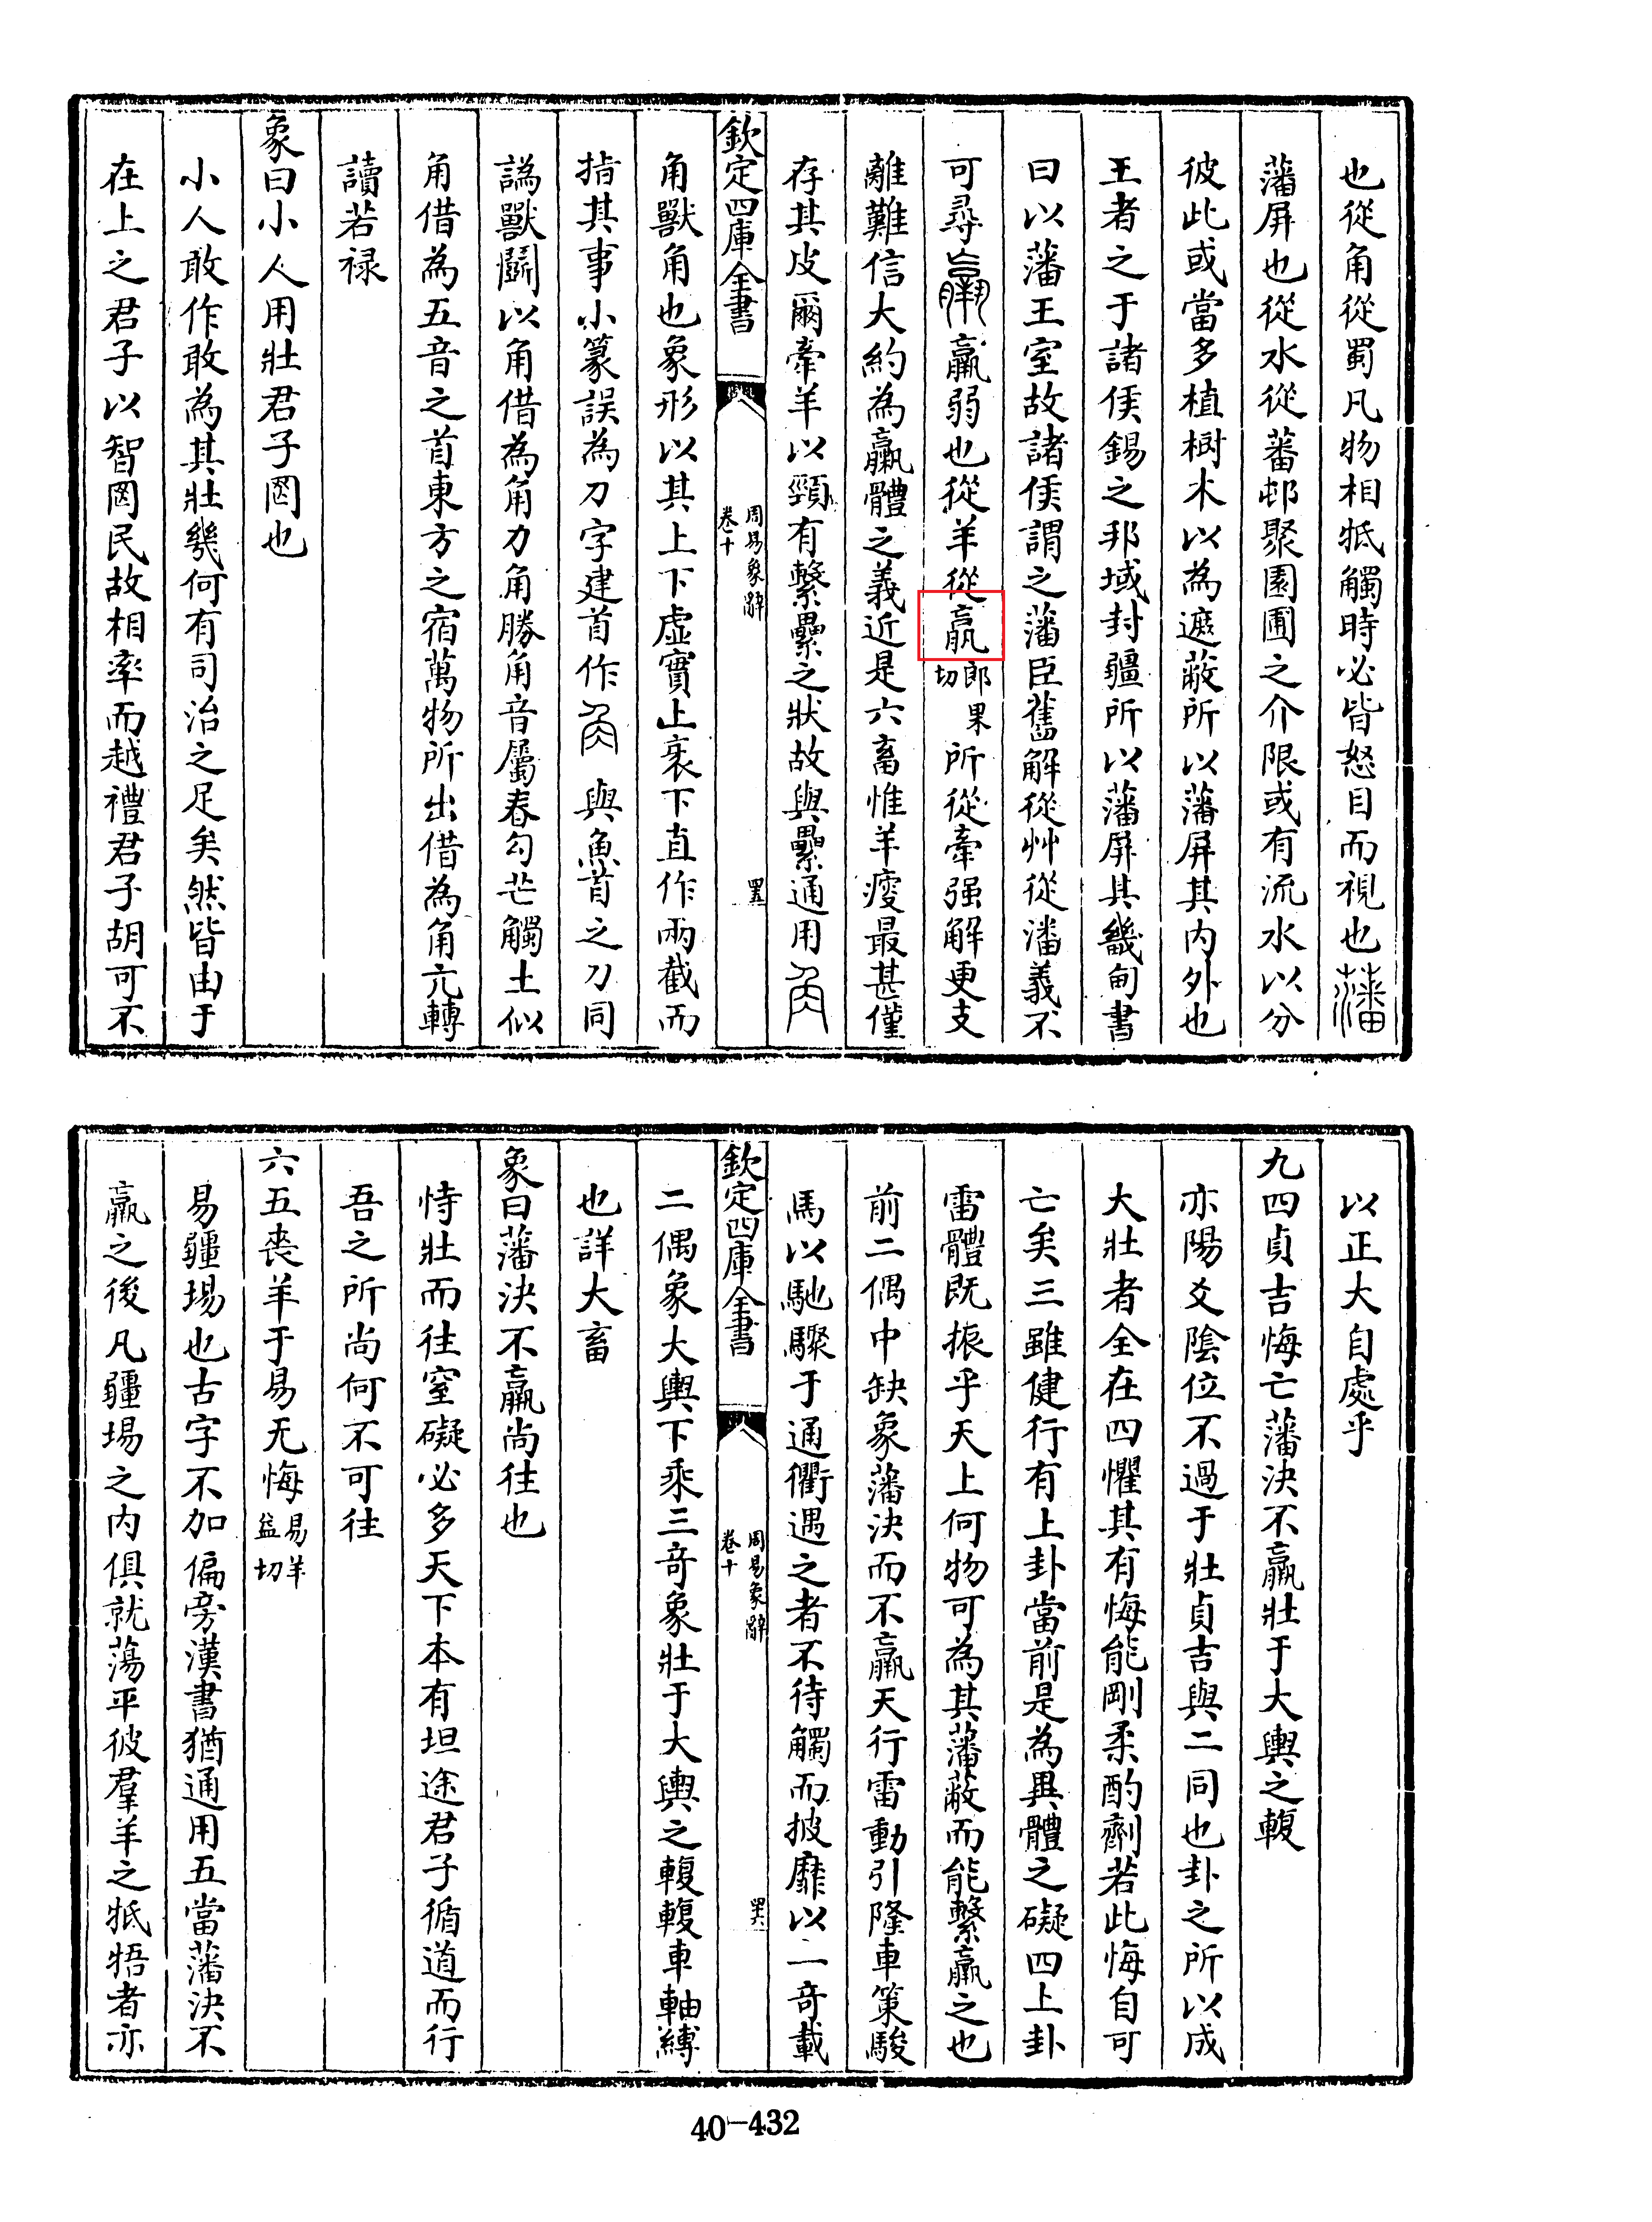 也從角從蜀凡物相牴觸時必皆怒目而視也藩
藩屏也從水從蕃邨聚園圃之介限或有流水以分
彼此或當多植樹木以為遮蔽所以藩屏其内外也
王者之于諸侯錫之邦域封疆所以藩屏其畿甸書
曰以藩王室故諸侯謂之藩臣舊解從艸從潘義不
可尋羸羸弱也從羊從𣎆郎果切所從牽强解更支
離難信大約為羸體之義近是六畜惟羊瘦最甚僅
存其皮爾牽羊以頸有繫纍之狀故與纍通用角
欽定四庫全書
周易象辭
卷十
罣
角獸角也象形以其上下虚實上衺下直作兩截而
指其事小篆誤為刀字建首作角與魚首之刀同
譌獸鬭以角借為角力角勝角音屬春勾芒觸土似
角借為五音之首東方之宿萬物所出借為角亢轉
讀若禄
象曰小人用壯君子罔也
小人敢作敢為其壯幾何有司治之足矣然皆由于
在上之君子以智罔民故相率而越禮君子胡可不
以正大自處乎
九四貞吉悔亡藩決不羸壯于大輿之輹
亦陽爻陰位不過于壯貞吉與二同也卦之所以成
大壯者全在四懼其有悔能剛柔酌劑若此悔自可
亡矣三雖健行有上卦當前是為異體之礙四上卦
雷體既振乎天上何物可為其藩蔽而能繫羸之也
前二偶中缺象藩決而不羸天行雷動引隆車策駿
馬以馳驟于通衢遇之者不待觸而披靡以一奇載
欽定四庫全書
周易象辭
卷十
二偶象大輿下乘三奇象壯于大輿之輹輹車軸縛
也詳大畜
象曰藩決不羸尚往也
恃壯而往窒礙必多天下本有坦途君子循道而行
吾之所尚何不可往
六五喪羊于易无悔易羊益切
易疆埸也古字不加偏旁漢書猶通用五當藩決不
羸之後凡疆埸之内俱就蕩平彼羣羊之牴牾者亦
40-432